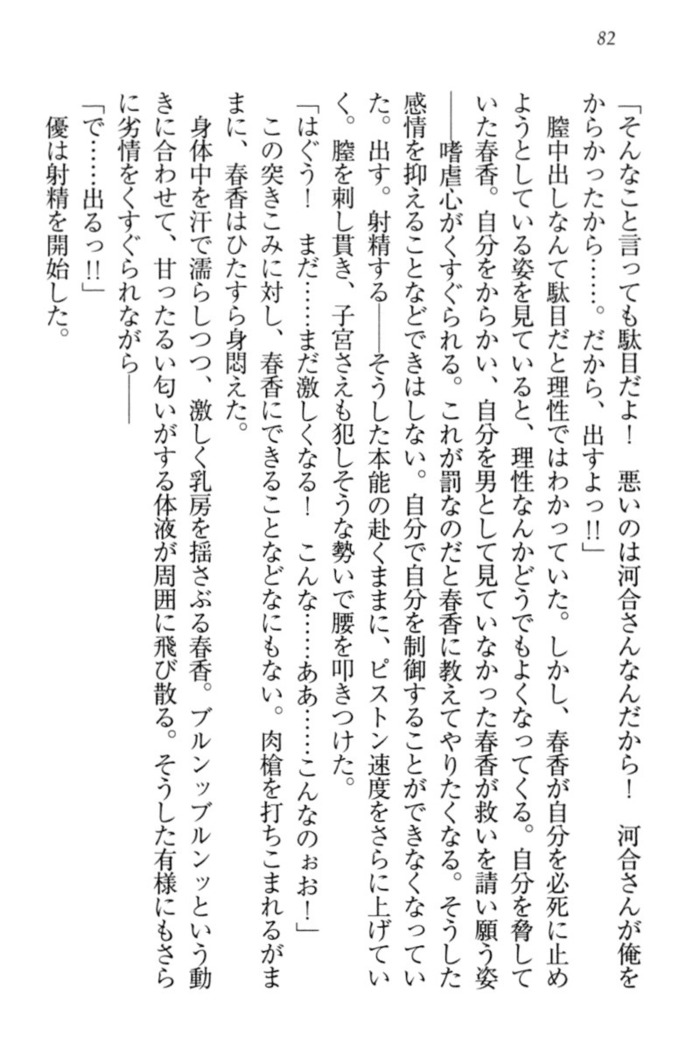 82
「そんなこと言っても駄目だよ！　悪いのは河合さんなんだから！　河合さんが俺を
からかったから……。だから、出すよっ!!」
　膣中出しなんて駄目だと理性ではわかっていた。しかし、春香が自分を必死に止め
ようとしている姿を見ていると、理性なんかどうでもよくなってくる。自分を脅して
いた春香。自分をからかい、自分を男として見ていなかった春香が救いを請い願う姿
――嗜虐心がくすぐられる。これが罰なのだと春香に教えてやりたくなる。そうした
感情を抑えることなどできはしない。自分で自分を制御することができなくなってい
た。出す。射精する――そうした本能の赴くままに、ピストン速度をさらに上げてい
く。膣を刺し貫き、子宮さえも犯しそうな勢いで腰を叩きつけた。
「はぐう！　まだ……まだ激しくなる！　こんな……ああ……こんなのぉお！」
　この突きこみに対し、春香にできることなどなにもない。肉槍を打ちこまれるがま
まに、春香はひたすら身悶えた。
　身体中を汗で濡らしつつ、激しく乳房を揺さぶる春香。ブルンッブルンッという動
きに合わせて、甘ったるい匂いがする体液が周囲に飛び散る。そうした有様にもさら
に劣情をくすぐられながら――
「で……出るっ!!」
　優は射精を開始した。